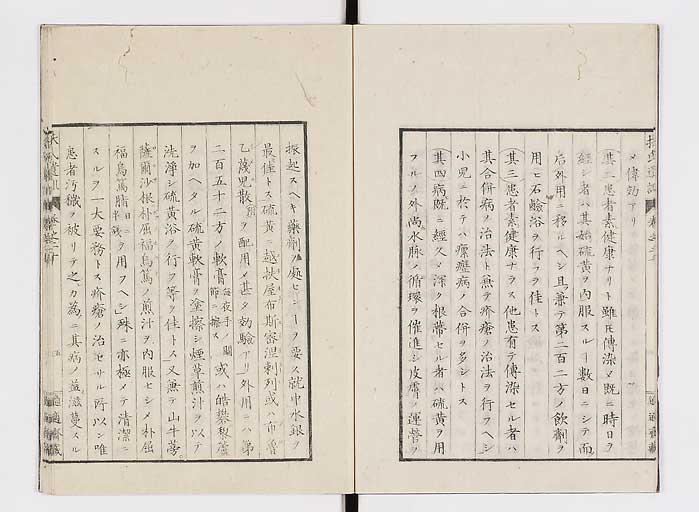 メ偉効アリ
其二患者素健康ナリト雖𪜈傳染メ既ニ時日ヲ
經シ者ハ其始硫黄ヲ内服スルヿ數日ニシテ而
后外用ニ移ルヘシ且兼テ第二百二方ノ飲劑ヲ
用ヒ石鹸浴ヲ行フヲ佳トス
其三患者素健康ナラス他患有テ傳染セル者ハ
其合併病ノ治法ト無テ疥瘡ノ治法ヲ行フヘシ
小兒ニ於テハ瘰癧病ノ合併ヲ多シトス
其四病既ニ經久メ深ク根蒂セル者ハ硫黄ヲ用
フルノ外尚水脉ノ循環ヲ催進シ皮膚ノ運營ヲ
振起スヘキ藥劑ヲ處センヿヲ要ス就中水銀ヲ
最佳トス硫黄ニ越幾屋布斯窖涅刺列或ハ布魯
乙蔑兒散ヲ配用メ甚タ効驗アリ外用ニハ第
二百五十二方ノ軟膏毎夜手關節ニ擦ス或ハ皓礬藜蘆
ヲ加ヘタル硫黄軟膏ヲ塗擦シ煙草煎汁ヲ以テ
洗淨シ硫黄浴ヲ行フ等ヲ佳トス又無テ山牛蒡
薩爾沙根朴屈福烏篤ノ煎汁ヲ内服セシメ朴屈
福烏篤脂日ニ半錢ヲ用フヘシ殊ニ亦極メテ清潔ニ
スルヲ一大要務トス疥瘡ノ治セサル所以ン唯
患者汚穢ヲ被リテ之カ為ニ其病ノ益滋蔓スル
扶氏遺訓
卷之二十
適適齋藏